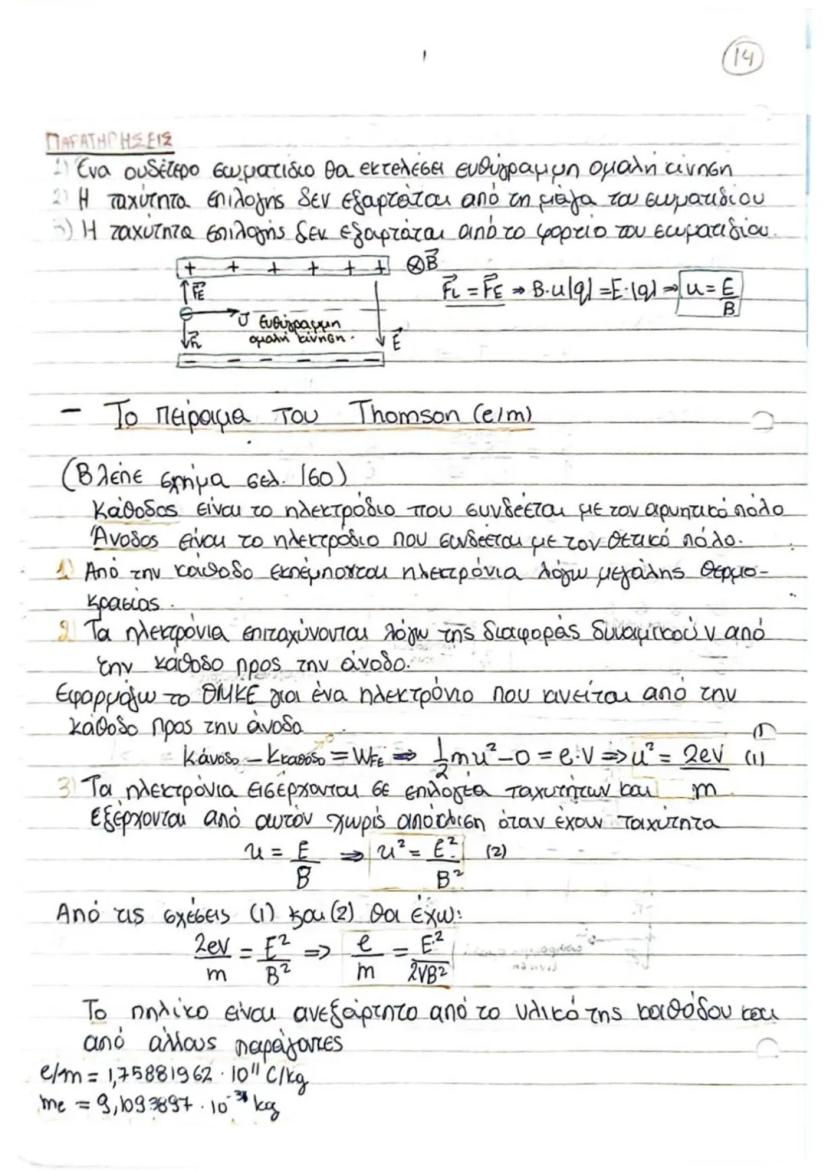 14
ΠΑΡΑΤΗΡΗΣΕΙΣ
1) Ένα ουδέτερο σωματίδιο θα εκτελέσει ευθύγραμμη ομαλή κίνηση
2) Η ταχύτητα επιλογής δεν εξαρτάται από τη μάζα του σωματιδίου
3) Η ταχύτητα επιλογής δεν εξαρτάται από το φορτίο του σωματιδίου.
+ + + + + + ⊗B⃗
F⃗E F⃗L = F⃗E ⇒ B·u|q| = E·|q| ⇒ u = E/B
υ⃗ ευθύγραμμη
ομαλή κίνηση. E⃗
− − − − − −
– Το πείραμα του Thomson (e/m)
(Βλέπε σχήμα σελ. 160)
Κάθοδος είναι το ηλεκτρόδιο που συνδέεται με τον αρνητικό πόλο
Άνοδος είναι το ηλεκτρόδιο που συνδέεται με τον θετικό πόλο.
1) Από την κάθοδο εκπέμπονται ηλεκτρόνια λόγω μεγάλης θερμο-
κρασίας.
2) Τα ηλεκτρόνια επιταχύνονται λόγω της διαφοράς δυναμικού V από
την κάθοδο προς την άνοδο.
Εφαρμόζω το ΘΜΚΕ για ένα ηλεκτρόνιο που κινείται από την
κάθοδο προς την άνοδο
Kάνοδο − Kκαθόδο = WFE ⇒ 1/2 mu² − 0 = e·V ⇒ u² = 2eV/m (1)
3) Τα ηλεκτρόνια εισέρχονται σε επιλογέα ταχυτήτων και
εξέρχονται από αυτόν χωρίς απόκλιση όταν έχουν ταχύτητα
u = E/B ⇒ u² = E²/B² (2)
Από τις σχέσεις (1) και (2) θα έχω:
2eV/m = E²/B² ⇒ e/m = E²/2VB²
Το πηλίκο είναι ανεξάρτητο από το υλικό της καθόδου και
από άλλους παράγοντες
e/m = 1,75881962 · 10¹¹ C/kg
me = 9,1093897 · 10⁻³¹ kg